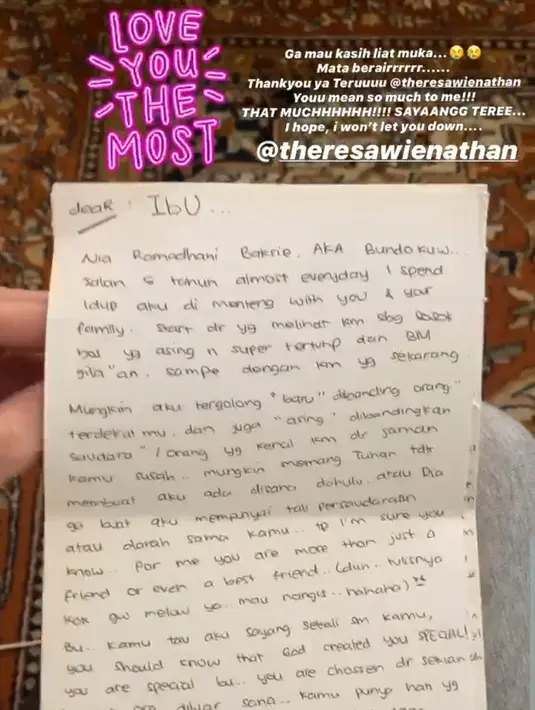 LOVE
YOU
THE
MOST
Ga mau kasih liat muka...😢😢
Mata berairrrrrr......
Thankyou ya Teruuuu @theresawienathan
Youu mean so much to me!!!
THAT MUCHHHHHH!!!! SAYAANGG TEREE...
I hope, i won't let you down....
@theresawienathan
dear : IbU...
Nia Ramadhani Bakrie. AKA Bundokuw..
Salan 5 tahun almost everyday I spend
Idup aku di menteng with you & your
family.. Start dr yg melihat km sbg sosok
yg asing n super tertutp dan BM
gila"an. sampe dengan km yg sekarang.
Mungkin aku tergolong "baru" dibanding orang"
terdekat mu. dan juga "asing" dibandingkan
saudara" / orang yg kenal km dr jaman
kamu susah.. mungkin memang Tuhan tdk
membuat aku ada disana dahulu. atau Dia
ga buat aku mempunyai tali persaudaraan
atau darah sama kamu... tp I'm sure you
know... For me you are more than just a
friend or even a best friend.. (duh.. tulisnya
kok gw mellow ya.. mau nangis.. hahaha)
Bu.. kamu tau aku sayang sekali sm kamu,
you should know that God created you SPECIAL!
you are special bu... you are chossen dr sekian
diluar sana.. kamu punya hati yg